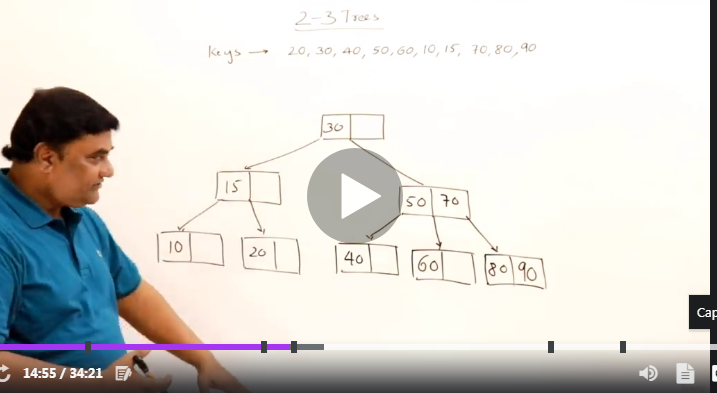 2-3 Trees
Keys → 20, 30, 40, 50, 60, 10, 15, 70, 80, 90
30
15
50 70
10 20 40 60 80 90
Cap
14:55 / 34:21